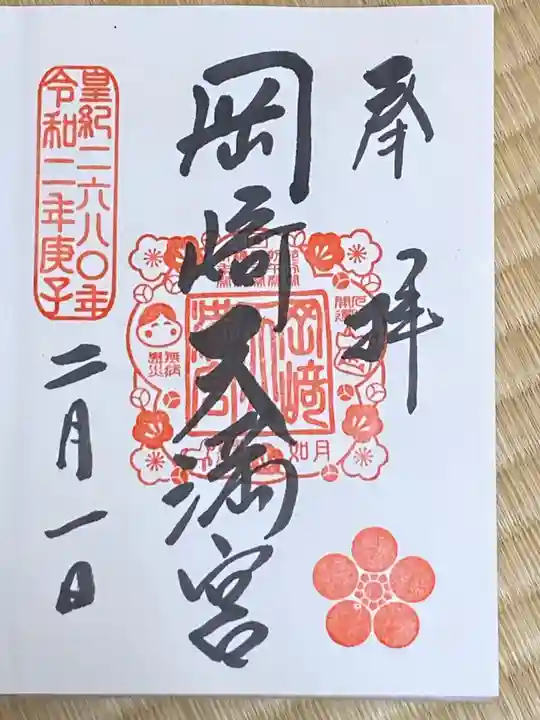 奉拝
岡崎天満宮
岡崎
天満宮
如月
無病
息災
皇紀二六八〇年
令和二年庚子
二月一日